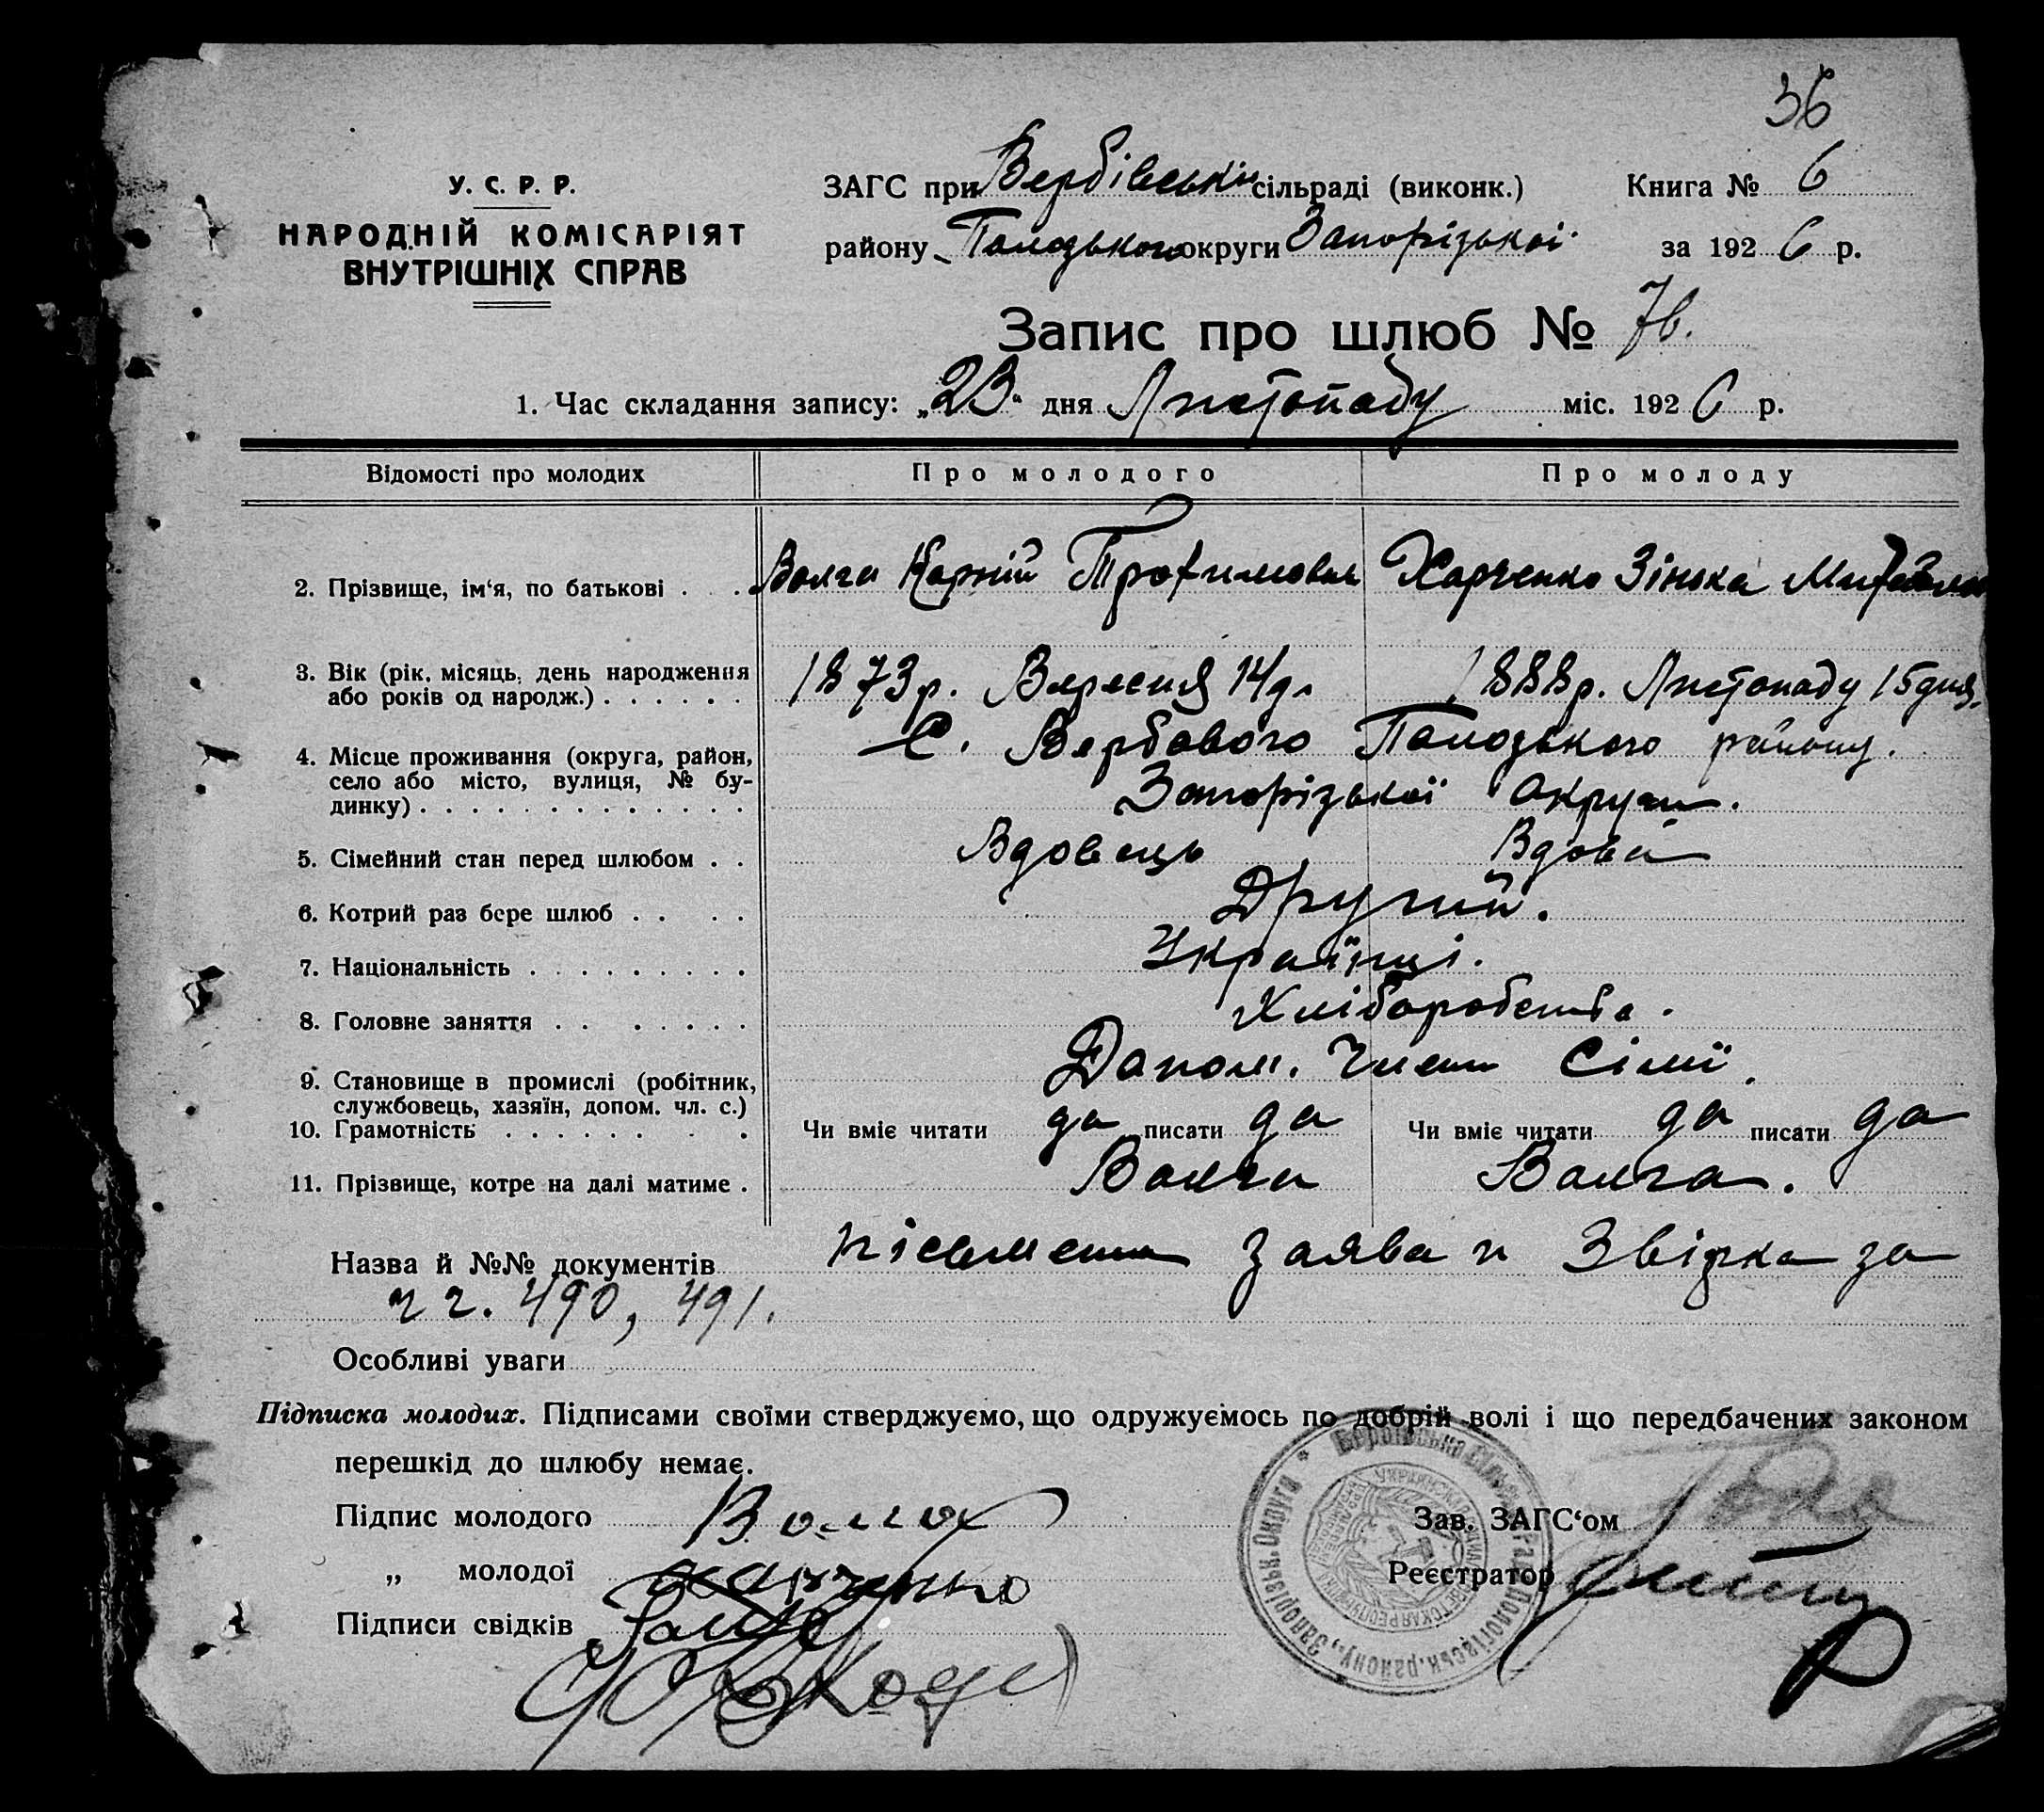 36
У. С. Р. Р.
НАРОДНІЙ КОМІСАРІЯТ
ВНУТРІШНІХ СПРАВ
ЗАГС при Вербівській сільраді (виконк.) Книга № 6
району Пологзького округи Запорізької за 1926 р.
Запис про шлюб № 76.
1. Час складання запису: „23“ дня Листопаду міс. 1926 р.
Відомості про молодих Про молодого Про молоду
2. Прізвище, ім‘я, по батькові . . . Волга Корній Трофимович Харченко Зінька
3. Вік (рік, місяць, день народження
або років од народж.) . . . . . . 1873р. Вересня 14д. 1888р. Листопаду 15дня.
4. Місце проживання (округа, район,
село або місто, вулиця, № бу-
динку) . . . . . . . . . . . . .
С. Вербового Пологзького району.
Запорізької Округи.
5. Сімейний стан перед шлюбом . . Вдовець Вдова
6. Котрий раз бере шлюб . . . . Другий.
7. Національність . . . . . . . . . Українці.
8. Головне заняття . . . . . . . Хліборобства.
9. Становище в промислі (робітник,
службовець, хазяїн, допом. чл. с.)
Допом. Член Сімї.
10. Грамотність . . . . . . . . Чи вміє читати да писати да Чи вміє читати да писати да
11. Прізвище, котре на далі матиме . Волга Волга.
Назва й №№ документів заява и Звірка за
чч. 490, 491.
Особливі уваги
Підписка молодих. Підписами своїми стверджуємо, що одружуємось по добрій волі і що передбачених законом
перешкід до шлюбу немає.
Підпис молодого Волга Зав. ЗАГС‘ом
„ молодої Харченко Реєстратор
Підписи свідків